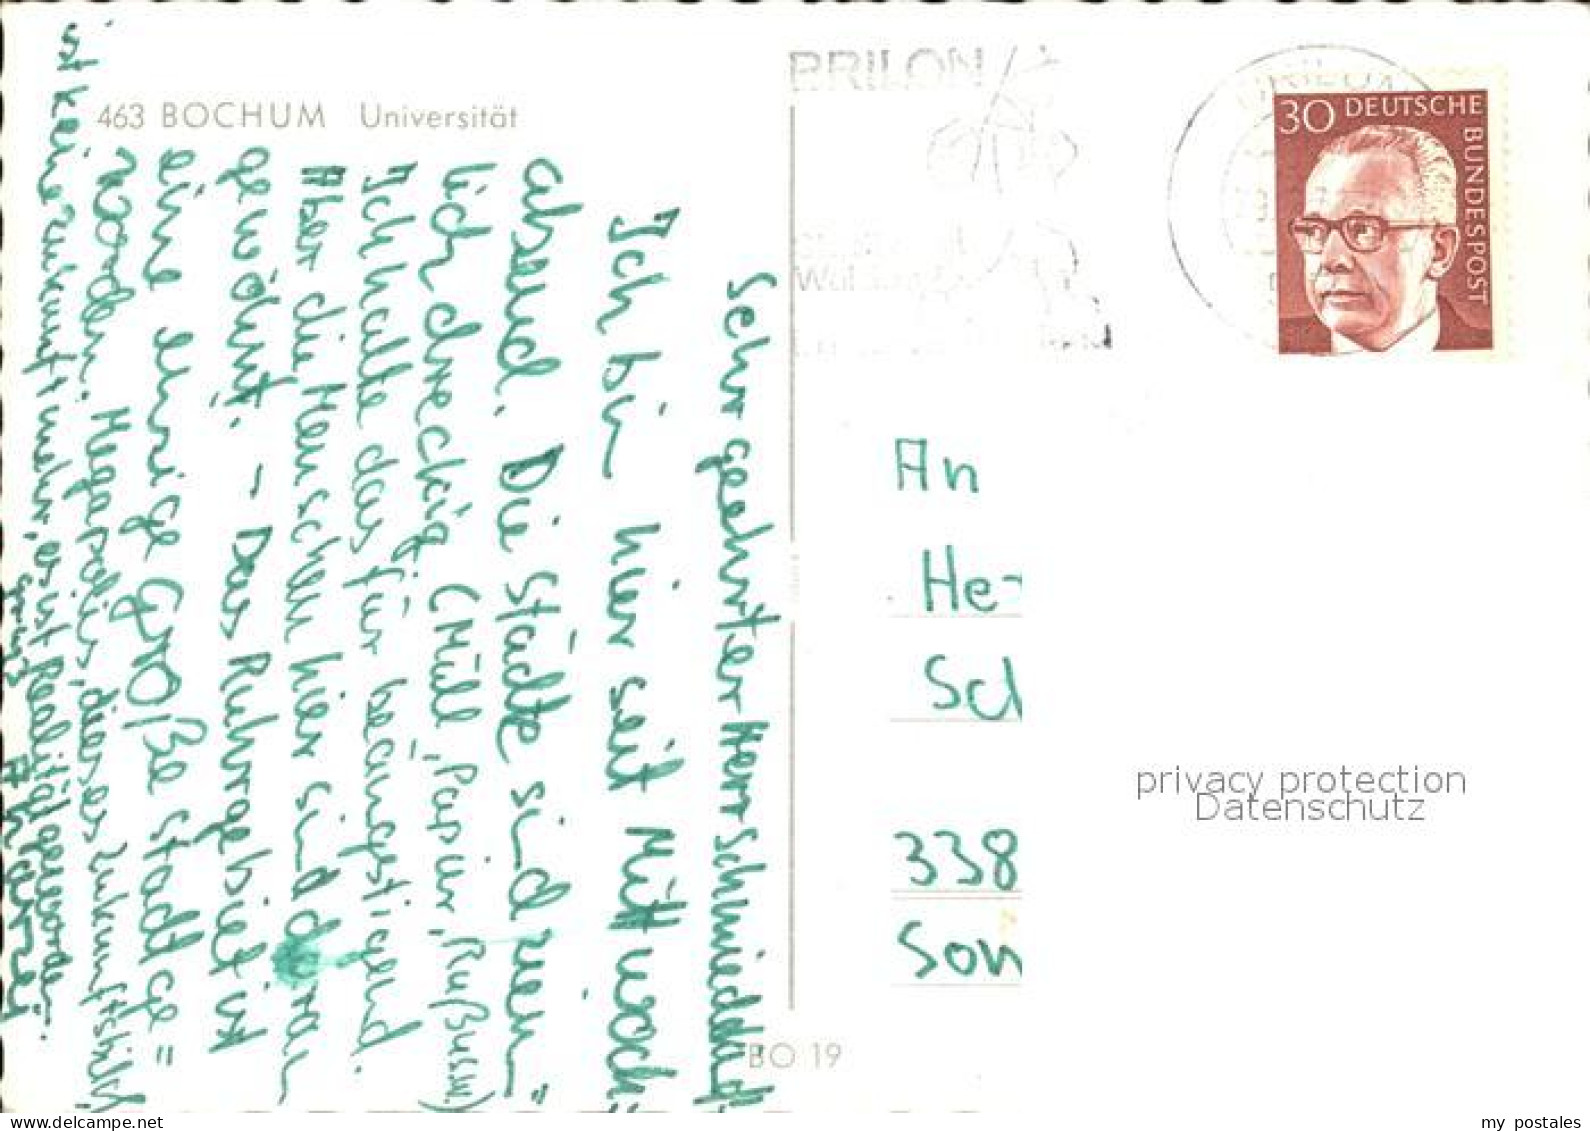 463 BOCHUM Universität
Sehr geehrter Herr Schmiedchen,
Ich bin hier seit Mittwoch=
abend. Die Städte sind ziem=
lich dreckig (Müll, Papier, Ruß usw.)
Ich halte das für beängstigend.
Aber die Menschen hier sind daran
gewöhnt. - Das Ruhrgebiet ist
eine einzige GROßE Stadt ge=
worden. Megapolis, dieses Zukunftsbild,
ist keine Zukunft mehr, es ist Realität geworden.
BO 19
BRILON
BRILON
30 DEUTSCHE BUNDESPOST
An
He
Sch
338
Son
privacy protection
Datenschutz
www.delcampe.net
my_postales